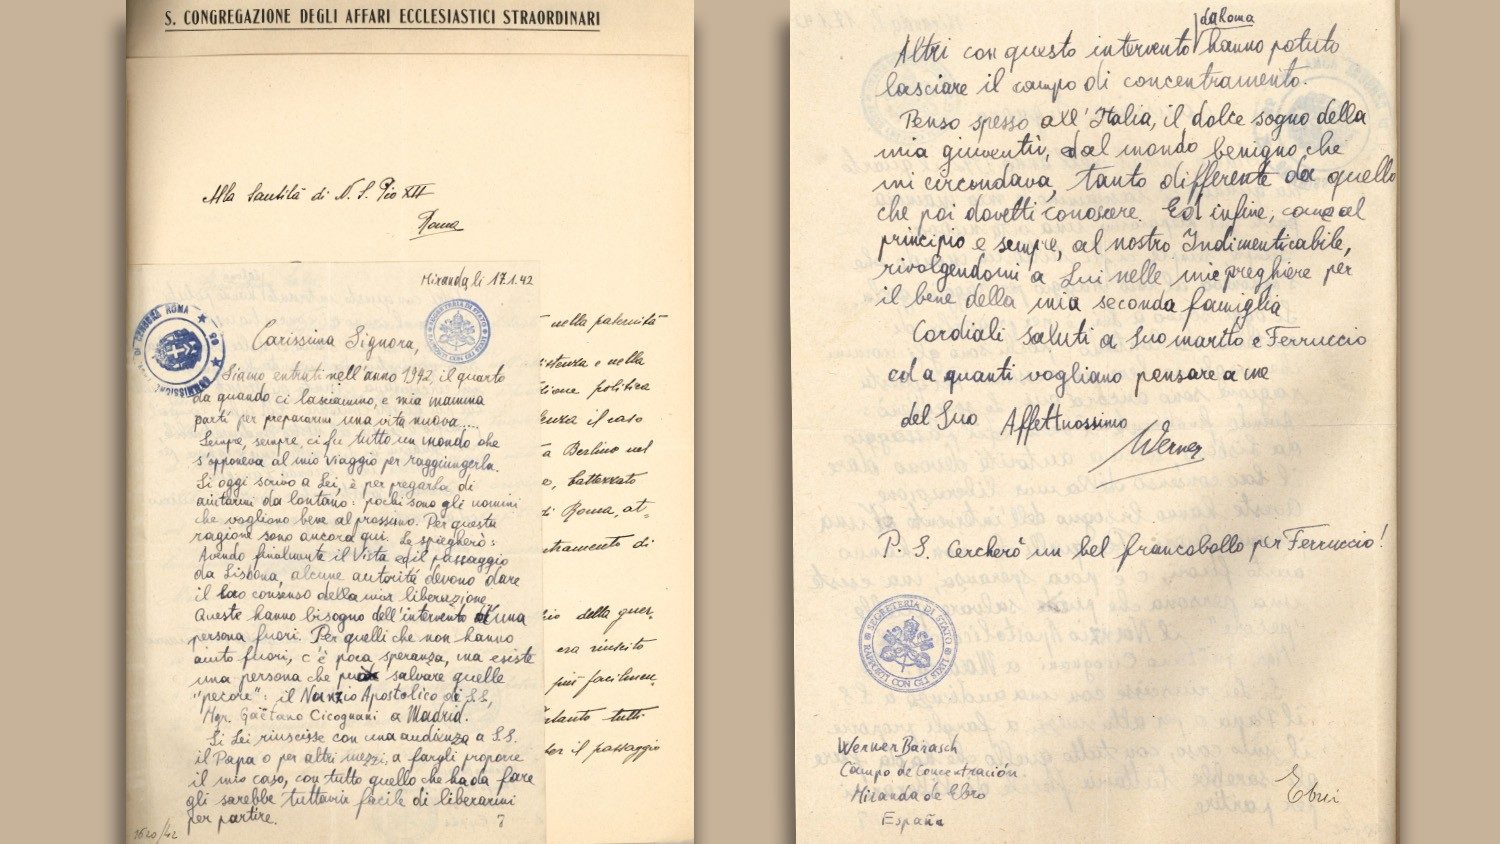 S. CONGREGAZIONE DEGLI AFFARI ECCLESIASTICI STRAORDINARI
Alla Santità di N. S. Pio XII
Roma
Miranda, li 17.1.42
Carissima Signora,
Siamo entrati nell'anno 1942, il quarto
da quando ci lasciammo, e mia mamma
partì per prepararmi una vita nuova....
Sempre, sempre, ci fu tutto un mondo che
s'opponeva al mio viaggio per raggiungerla.
Si oggi scrivo a Lei, è per pregarla di
aiutarmi da lontano: pochi sono gli uomini
che vogliono bene al prossimo. Per questa
ragione sono ancora qui. Le spiegherò:
Avendo finalmente il Vista ed il passaggio
da Lisbona, alcune autorità devono dare
il loro consenso della mia liberazione.
Queste hanno bisogno dell'intervento di una
persona fuori. Per quelli che non hanno
aiuto fuori, c'è poca speranza, ma esiste
una persona che può salvare quelle
"pecore": il Nunzio Apostolico di S.S.
Mgr. Gaëtano Cicognani a Madrid.
Si Lei riuscisse con una audienza a S.S.
il Papa o per altri mezzi, a fargli proporre
il mio caso, con tutto quello che ha da fare
gli sarebbe tuttavia facile di liberarmi
per partire.
1620/42
nella paternità
istenza e nella
zione politica
enza il caso
a Berlino nel
e, battezzato
di Roma, at-
tramento di
della guer-
era riuscito
più facilmen-
tanto tutti
per il passaggio
da Roma
Altri con questo intervento hanno potuto
lasciare il campo di concentramento.
Penso spesso all'Italia, il dolce sogno della
mia gioventù, dal mondo benigno che
mi circondava, tanto differente da quello
che poi dovetti conoscere. Ed infine, come al
principio e sempre, al nostro Indimenticabile,
rivolgendomi a Lui nelle mie preghiere per
il bene della mia seconda famiglia
Cordiali saluti a Suo marito e Ferruccio
ed a quanti vogliano pensare a me
del Suo Affettuossimo
Werner
P. S. Cercherò un bel francobollo per Ferruccio!
SEGRETERIA DI STATO
RAPPORTI CON GLI STATI
Werner Barasch
Campo de Concentración
Miranda de Ebro
España
Ebrei